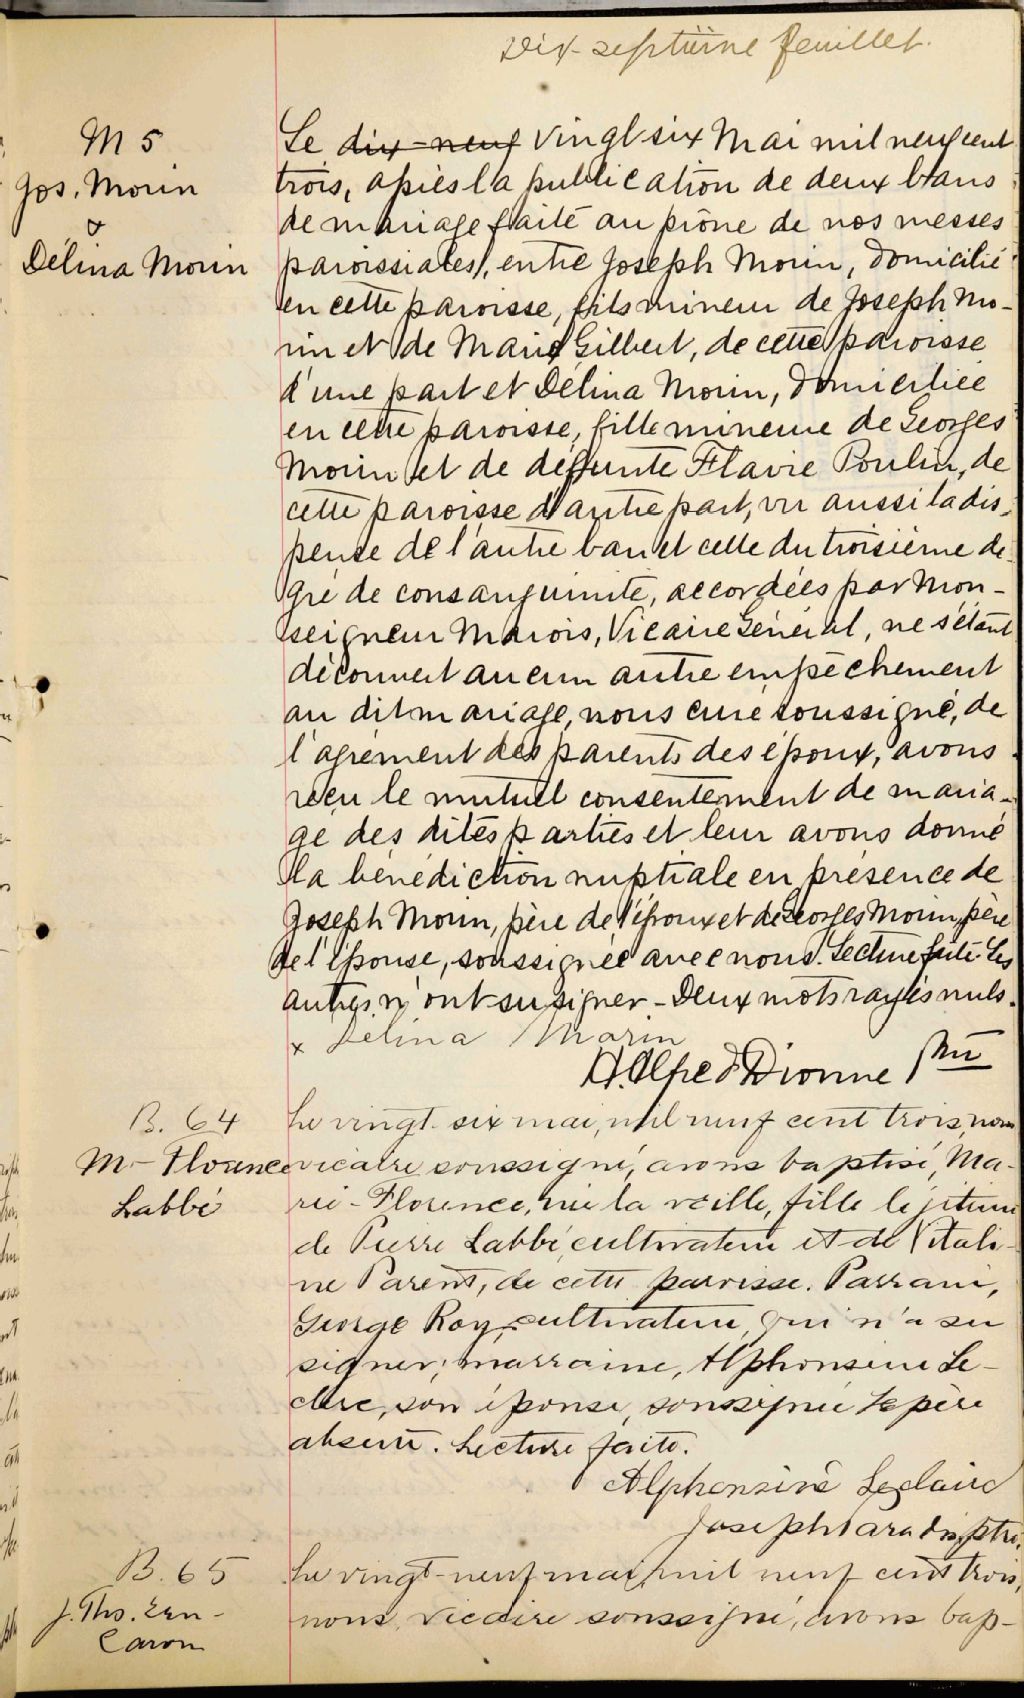 Dix-septième feuillet.
M 5
Jos. Morin
&
Délina Morin
Le dix-neuf vingt six Mai mil neuf cent
trois, après la publication de deux bans
de mariage faite au prône de nos messes
paroissiales, entre Joseph Morin, domicilié
en cette paroisse, fils mineur de Joseph Mo-
rin et de Marie Gilbert, de cette paroisse
d'une part et Délina Morin, domiciliée
en cette paroisse, fille mineure de Georges
Morin et de défunte Flavie Poulin, de
cette paroisse d'autre part, vu aussi la dis-
pense de l'autre ban et celle du troisième de-
gré de consanguinité, accordées par Mon-
seigneur Marois, Vicaire Général, ne s'étant
découvert aucun autre empêchement
au dit mariage, nous curé soussigné, de
l'agrément des parents des époux, avons
reçu le mutuel consentement de maria-
ge des dites parties et leur avons donné
la bénédiction nuptiale en présence de
Joseph Morin, père de l'époux et de Georges Morin, père
de l'épouse, soussignée avec nous. Lecture faite. Les
autres n'ont su signer - Deux mots rayés nuls.
x Delina Morin
H. Alfred Dionne Ptre
B. 64
M- Florence
Labbé
Le vingt-six mai, mil neuf cent trois, nous
vicaire soussigné, avons baptisé, Ma-
rie-Florence, née la veille, fille légitime
de Pierre Labbé, cultivateur et de Vitali-
ne Parent, de cette paroisse. Parrain,
George Roy, cultivateur, qui n'a su
signer; marraine, Alphonsine Le-
clerc, son épouse, soussignée Le père
absent. Lecture faite.
Alphonsine Leclaire
Joseph Paradis, ptre.
B. 65
J. Ths. Ern-
Caron
Le vingt-neuf mai, mil neuf cent trois,
nous, vicaire soussigné, avons bap-